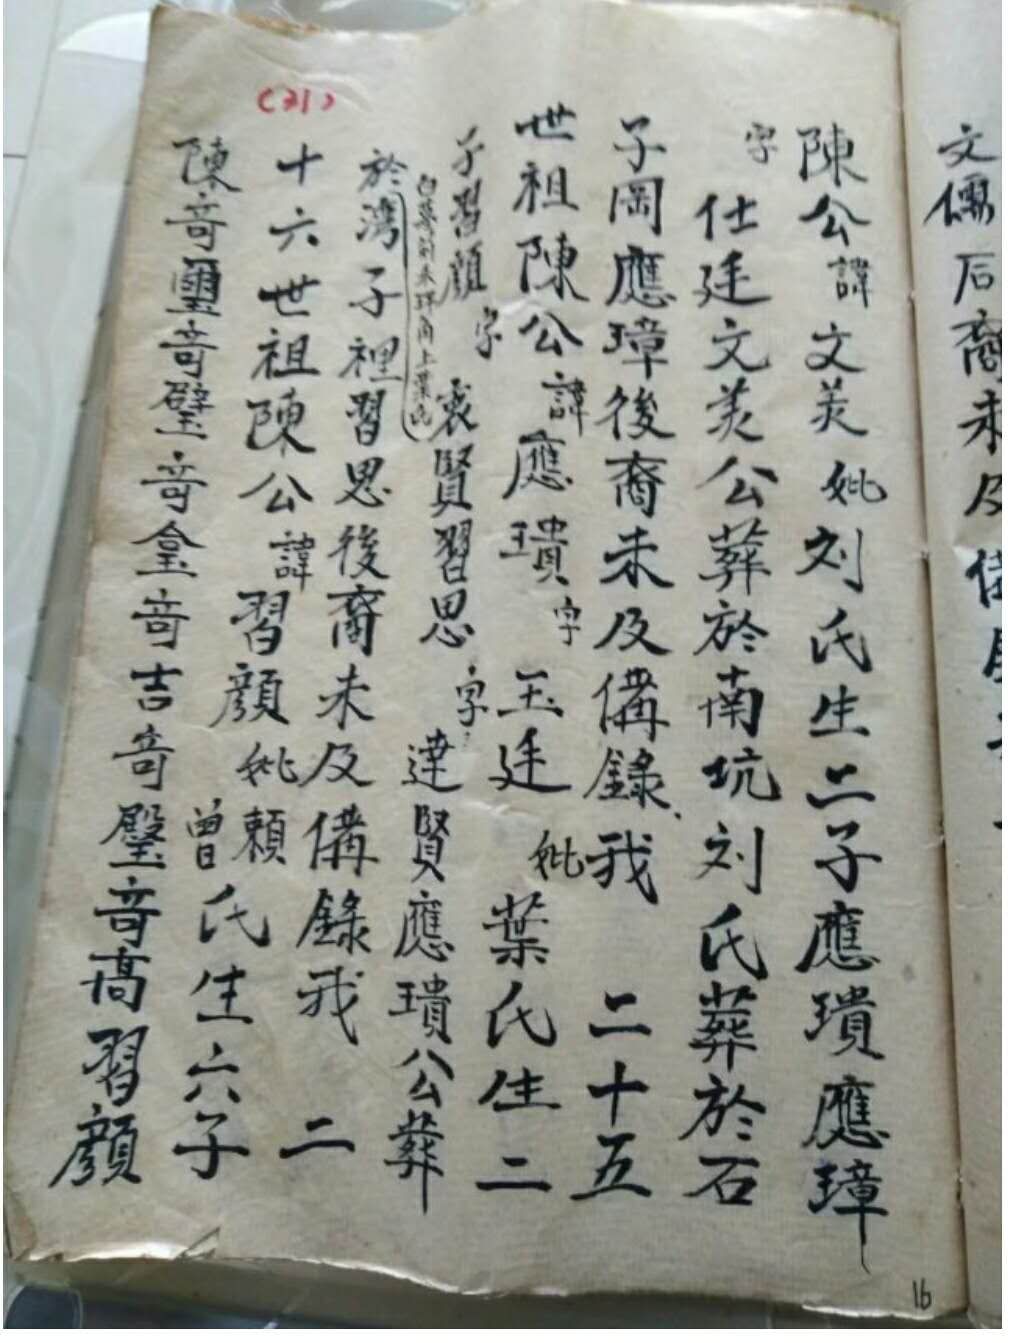 文儒后裔未及備
陳公諱文美妣刘氏生二子應瑱應璋
字仕廷文美公葬於南坑刘氏葬於石
子岡應璋後裔未及備錄、我二十五
世祖陳公諱應瑱字玉廷妣葉氏生二
子習顏字衷賢習思字達賢應瑱公葬
於湾子裡習思後裔未及備錄我二
十六世祖陳公諱習顏妣賴曾氏生六子
陳奇璽奇璧奇奇吉奇奇高習顏
(31)
16